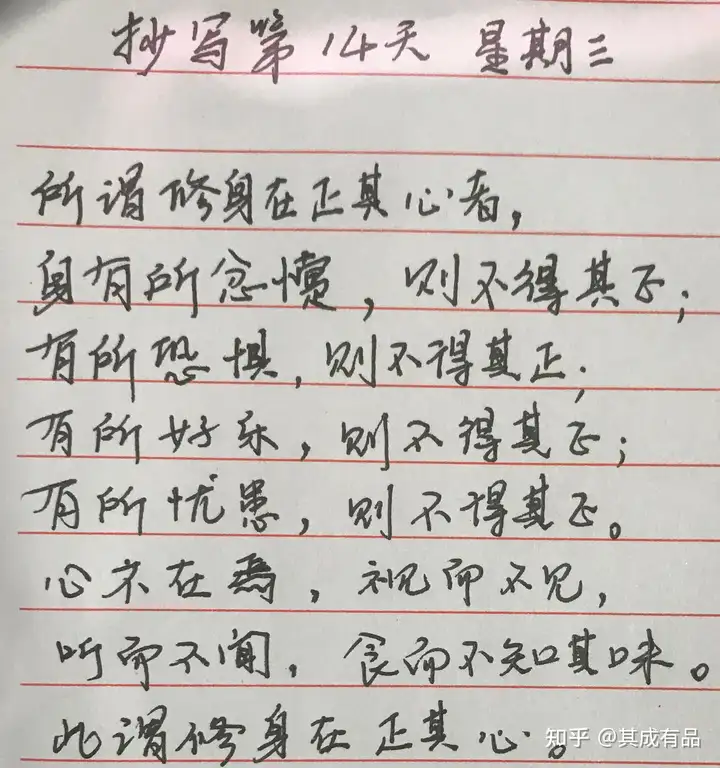 抄写第14天 星期三
所谓修身在正其心者，
身有所忿懥，则不得其正；
有所恐惧，则不得其正；
有所好乐，则不得其正；
有所忧患，则不得其正。
心不在焉，视而不见，
听而不闻，食而不知其味。
此谓修身在正其心。
知乎 @其成有品